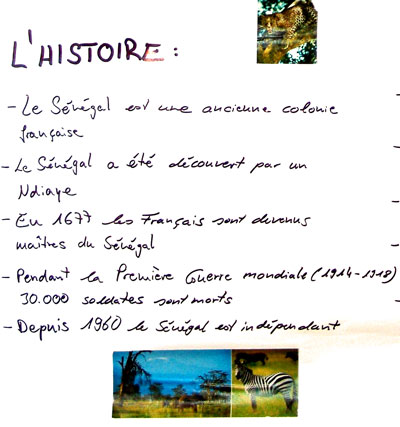 L'HISTOIRE :
- Le Sénégal est une ancienne colonie
française
- Le Sénégal a été découvert par un
Ndiaye
- En 1677 les Français sont devenus
maîtres du Sénégal
- Pendant la Première Guerre mondiale (1914-1918)
30.000 soldates sont morts
- Depuis 1960 le Sénégal est indépendant